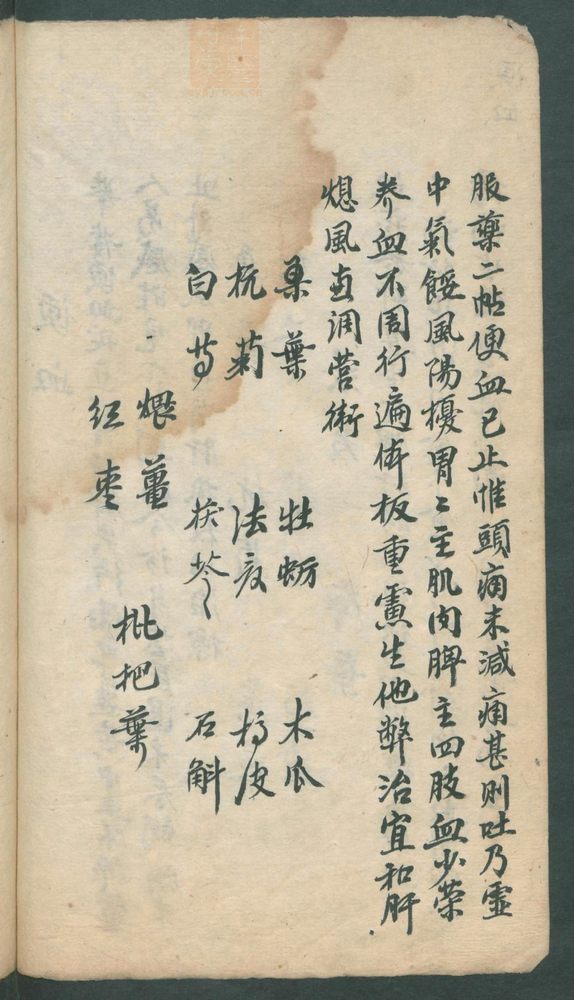 服藥二帖便血已止惟頭痛未減痛甚則吐乃靈
中氣餒風陽擾胃〻主肌肉脾主四肢血少榮
养血不周行遍体板重慮生他弊治宜和肝
熄風直润营衛
桑葉 牡蛎 木瓜
杭菊 法夏 橘皮
白芍 茯苓 石斛
煨薑
红枣 枇杷葉